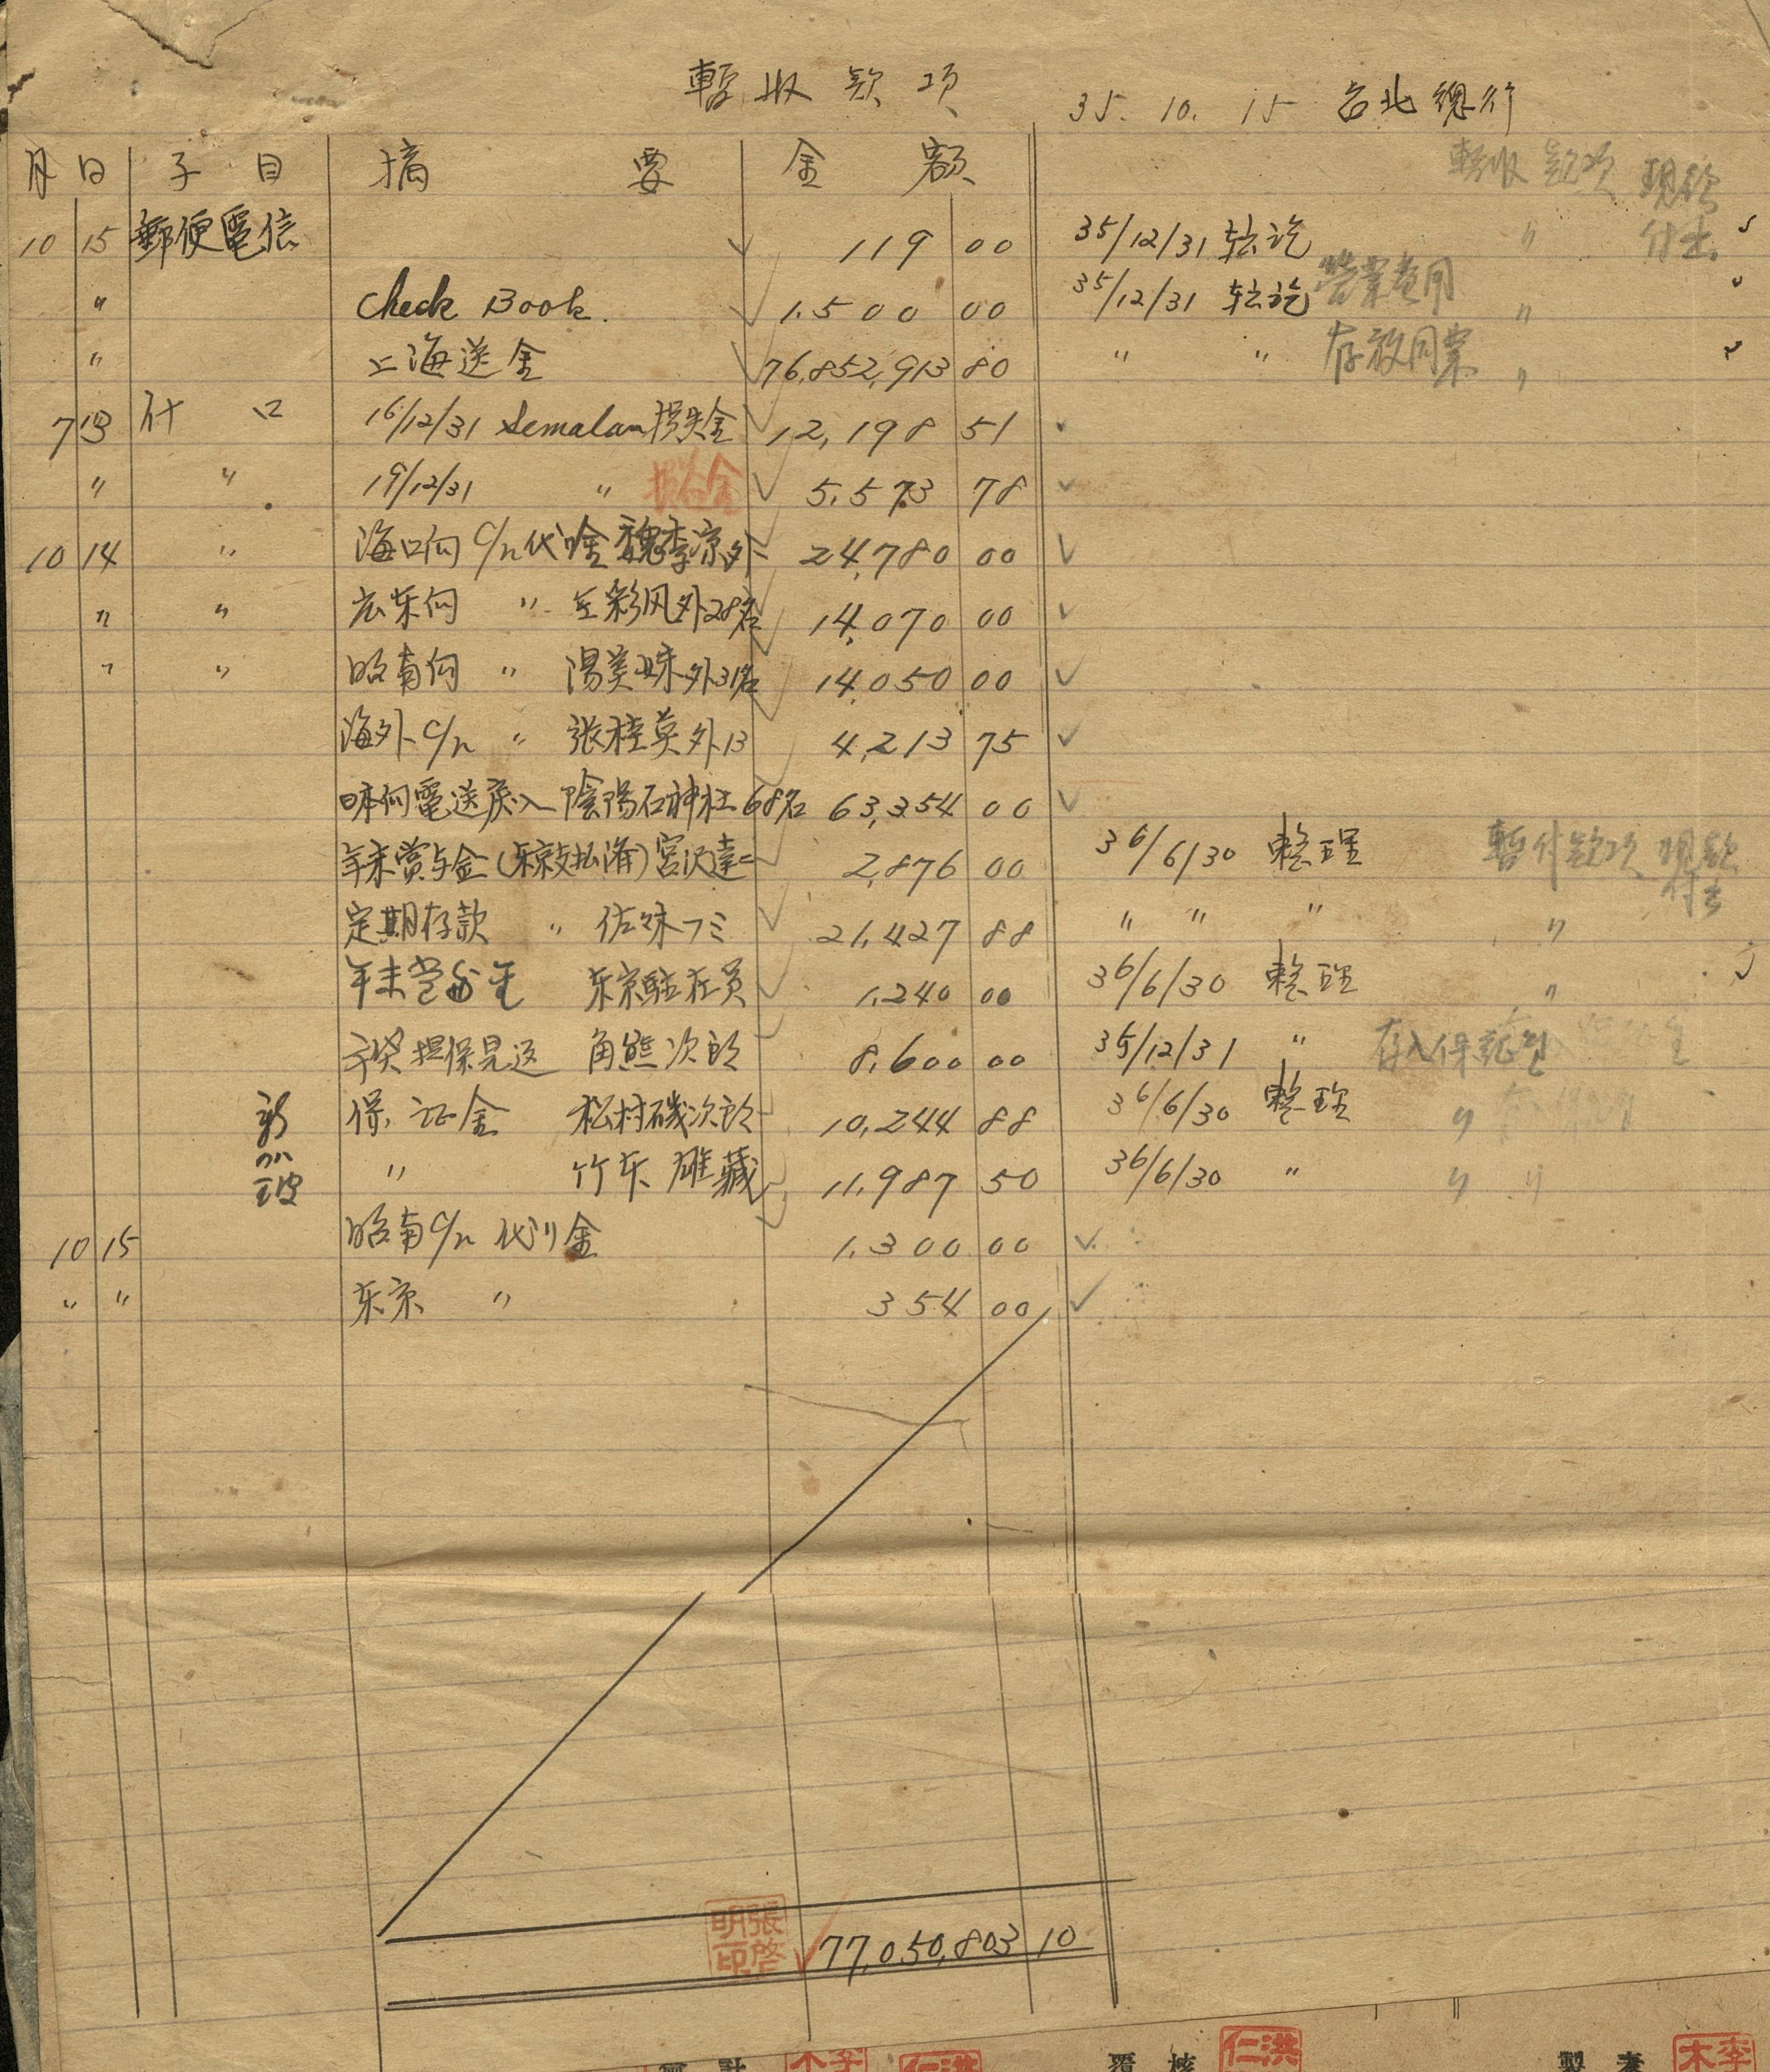 暫收款項
35. 10. 15 台北總行
月 日 子 目 摘 要 金 額 暫收款項 現金付出
10 15 郵便電信 119 00 35/12/31 転訖 〃
〃 Check Book. 1.500 00 35/12/31 転訖 営業費用 〃
〃 上海送金 76,852,913 80 〃 〃 存放同業 〃
7 13 什口 16/12/31 Semalan 損失金 12,198 51
〃 〃 19/12/31 〃 損益金 5.573 78
10 14 〃 海口向 C/n 代金 外 24,780 00
〃 〃 広东向 〃 彩风外28名 14,070 00
〃 〃 昭南向 〃 湯美妹外31名 14,050 00
海外 C/n 〃 張桂英外13 4,213 75
日本向電送戻入 陰陽石神社 68名 63,354 00
年末賞与金(东京支払済)宮沢達二 2,876 00 36/6/30 整理 暫付款項 現款付出
定期存款 〃 佐味フミ 21,427 88 〃 〃 〃 〃
年末賞与金 东京駐在員 1,240 00 36/6/30 整理 〃
担保見返 角熊次郎 8,600 00 35/12/31 〃 存入保証金
新加坡 保証金 松村磯次郎 10,244 88 36/6/30 整理 〃
〃 竹东雄藏 11,987 50 36/6/30 〃 〃 〃
10 15 昭南 C/n 代り金 1,300 00
〃 〃 东京 〃 354 00
張啓明印
77,050,803 10
會計 李木 洪仁 覆核 洪仁 製表 李木